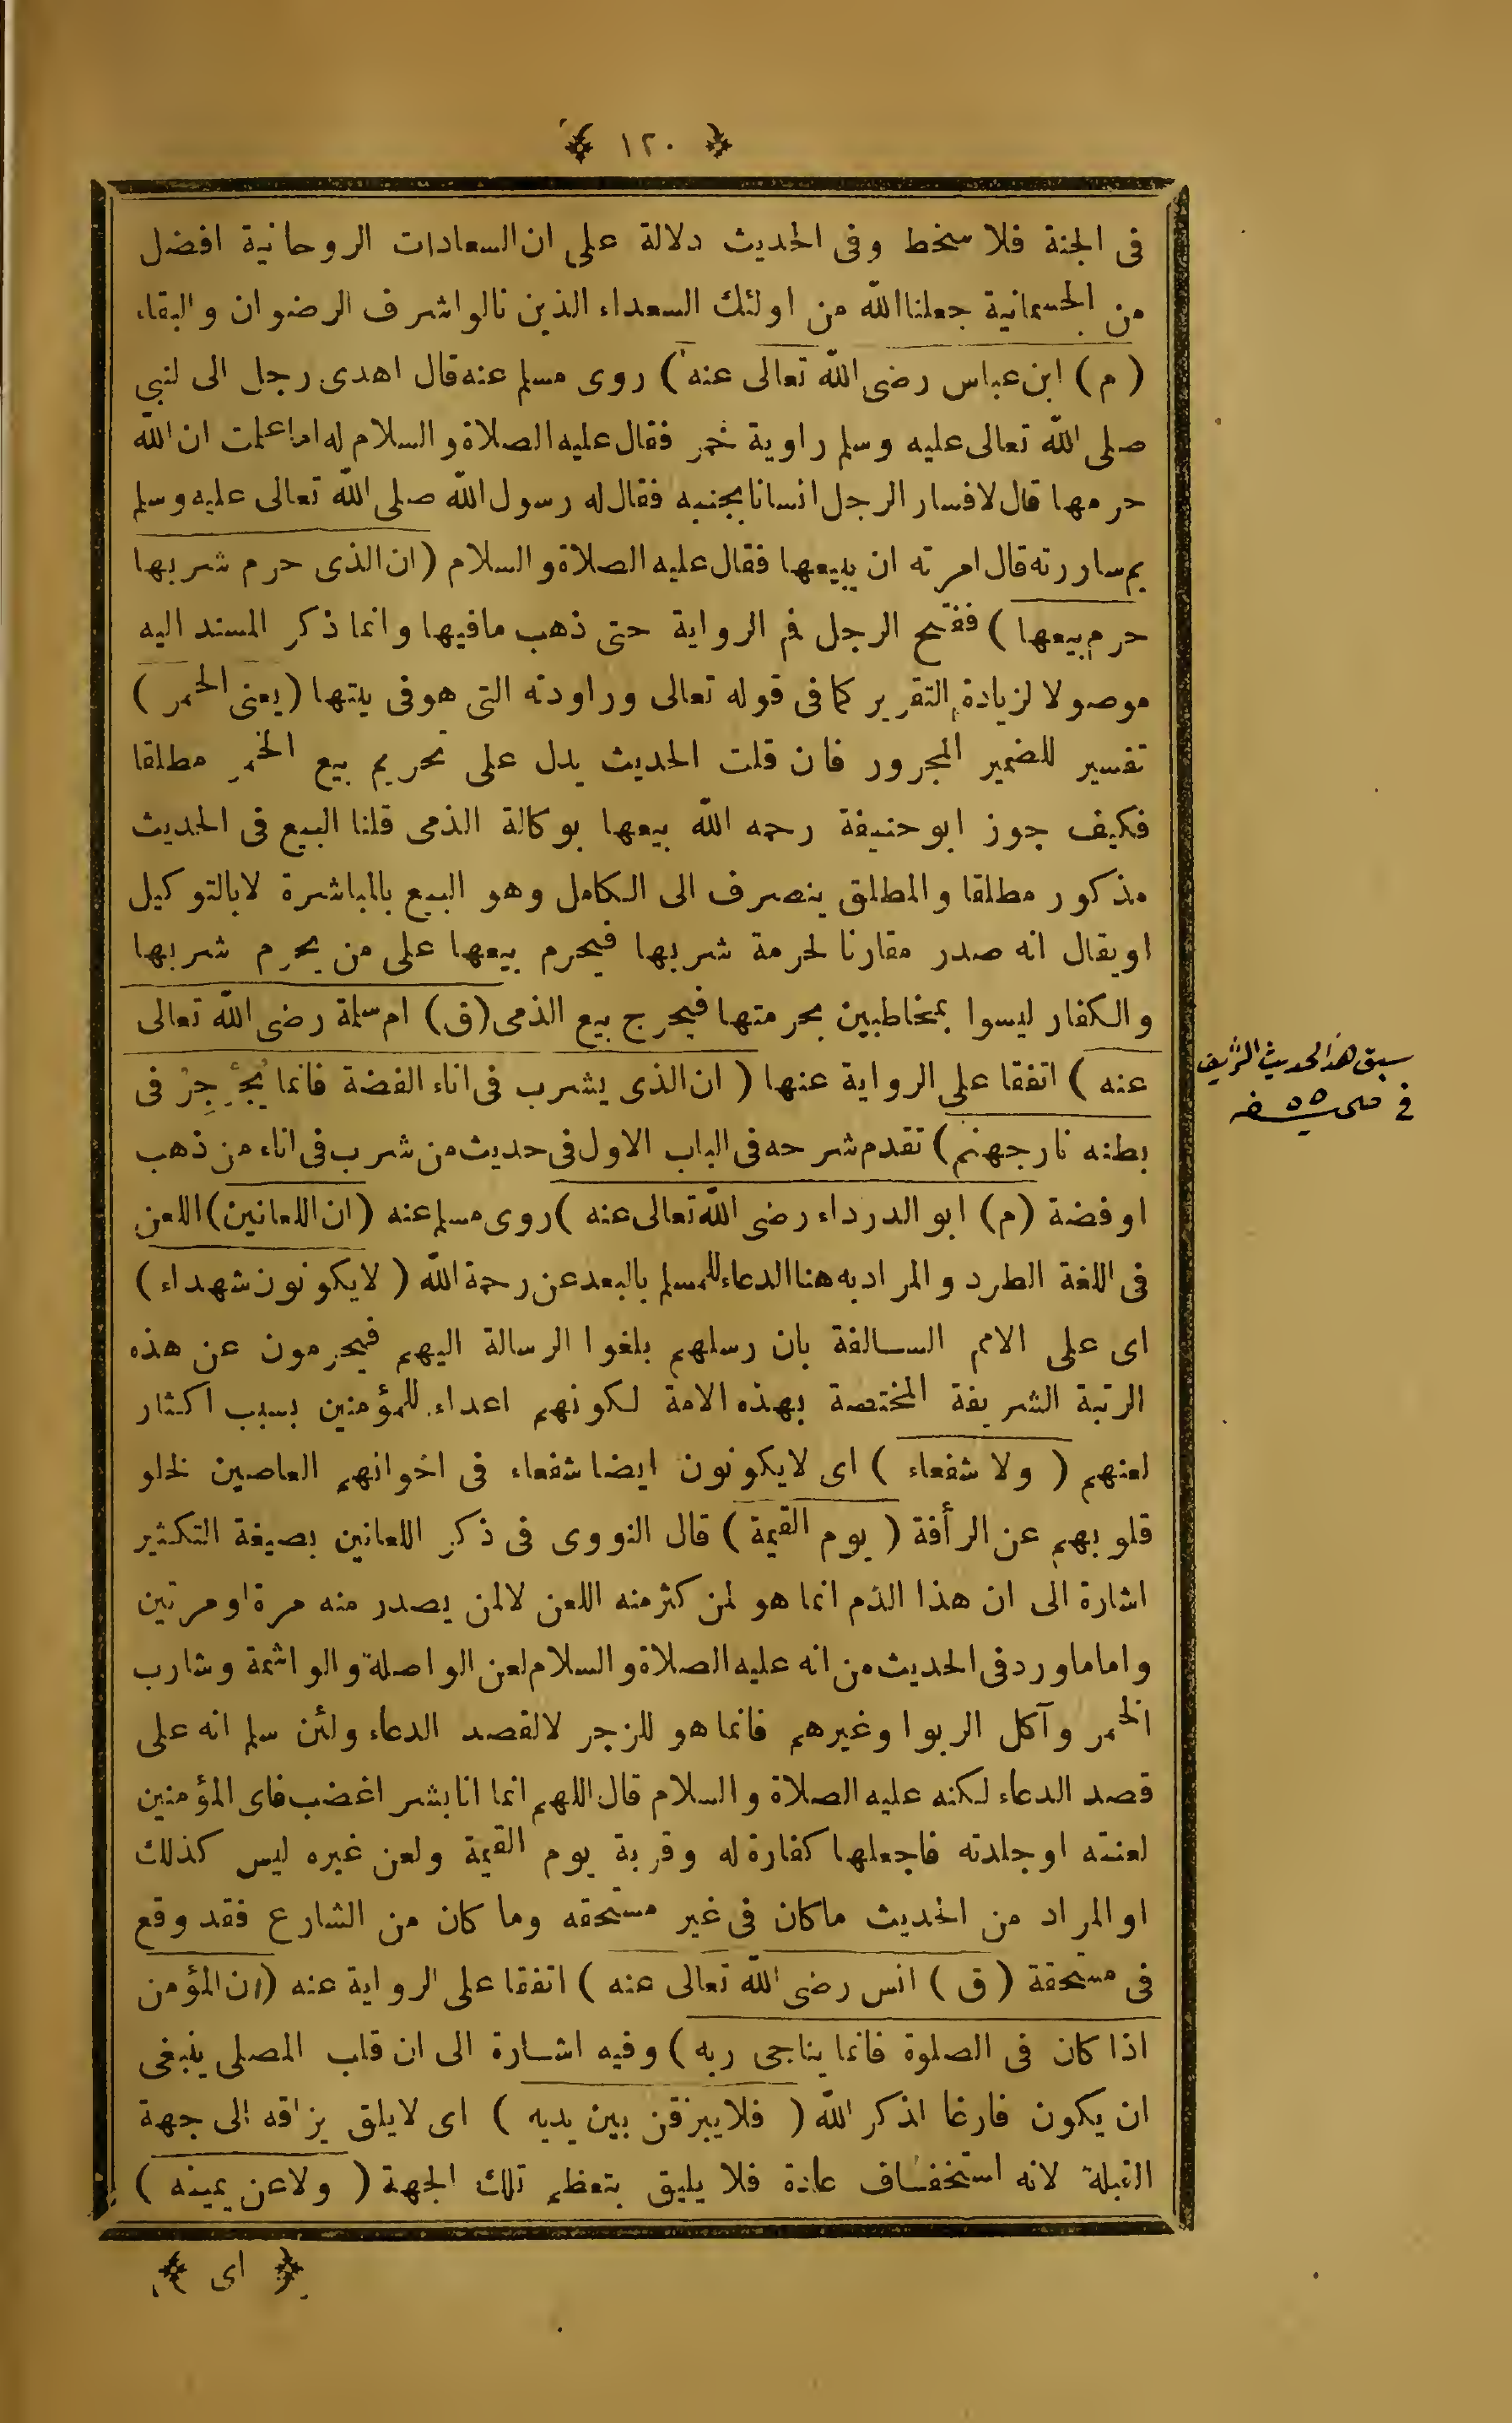 ﴿ ١٢٠ ﴾
فى الجنة فلا سخط وفى الحديث دلالة على ان السعادات الروحانية افضل
من الجسمانية جعلنا الله من اولئك السعداء الذين نالوا شرف الرضوان والبقاء
( م ) ابن عباس رضى الله تعالى عنه ) روى مسلم عنه قال اهدى رجل الى لنبى
صلى الله تعالى عليه وسلم راوية خمر فقال عليه الصلاة والسلام له اما علمت ان الله
حرمها قال لا فسار الرجل انسانا بجنبه فقال له رسول الله صلى الله تعالى عليه وسلم
بم ساررته قال امرته ان يبيعها فقال عليه الصلاة والسلام ( ان الذى حرم شربها
حرم بيعها ) ففتح الرجل فم الرواية حتى ذهب ما فيها وانما ذكر المسند اليه
موصولا لزيادة التقرير كما فى قوله تعالى وراودته التى هو فى بيتها ( يعنى الخمر )
تفسير للضمير المجرور فان قلت الحديث يدل على تحريم بيع الخمر مطلقا
فكيف جوز ابو حنيفة رحمه الله بيعها بوكالة الذمى قلنا البيع فى الحديث
مذكور مطلقا والمطلق ينصرف الى الكامل وهو البيع بالمباشرة لا بالتوكيل
او يقال انه صدر مقارنا لحرمة شربها فيحرم بيعها على من يحرم شربها
والكفار ليسوا بمخاطبين بحرمتها فيخرج بيع الذمى ( ق ) ام سلمة رضى الله تعالى
عنه ) اتفقا على الرواية عنها ( ان الذى يشرب فى اناء الفضة فانما يُجَرْجِرُ فى
بطنه نار جهنم ) تقدم شرحه فى الباب الاول فى حديث من شرب فى اناء من ذهب
او فضة ( م ) ابو الدرداء رضى الله تعالى عنه ) روى مسلم عنه ( ان اللعانين ) اللعن
فى اللغة الطرد والمراد به هنا الدعاء للمسلم بالبعد عن رحمة الله ( لا يكونون شهداء )
اى على الامم السالفة بان رسلهم بلغوا الرسالة اليهم فيحرمون عن هذه
الرتبة الشريفة المختصة بهذه الامة لكونهم اعداء للمؤمنين بسبب اكثار
لعنهم ( ولا شفعاء ) اى لا يكونون ايضا شفعاء فى اخوانهم العاصين لخلو
قلوبهم عن الرأفة ( يوم القيمة ) قال النووى فى ذكر اللعانين بصيغة التكثير
اشارة الى ان هذا الذم انما هو لمن كثر منه اللعن لا لمن يصدر منه مرة او مرتين
واما ما ورد فى الحديث من انه عليه الصلاة والسلام لعن الواصلة والواشمة وشارب
الخمر وآكل الربوا وغيرهم فانما هو للزجر لا لقصد الدعاء ولئن سلم انه على
قصد الدعاء لكنه عليه الصلاة والسلام قال اللهم انما انا بشر اغضب فاى المؤمنين
لعنته او جلدته فاجعلها كفارة له وقربة يوم القيمة ولعن غيره ليس كذلك
او المراد من الحديث ما كان فى غير مستحقه وما كان من الشارع فقد وقع
فى مستحقة ( ق ) انس رضى الله تعالى عنه ) اتفقا على الرواية عنه ( ان المؤمن
اذا كان فى الصلوة فانما يناجى ربه ) وفيه اشارة الى ان قلب المصلى ينبغى
ان يكون فارغا اذكر الله ( فلا يبزقن بين يديه ) اى لا يلق بزاقه الى جهة
القبلة لانه استخفاف عادة فلا يليق بتعظيم تلك الجهة ( ولا عن يمينه )
﴿ اى ﴾
سبق هذا الحديث الشريف
فى ٥٥